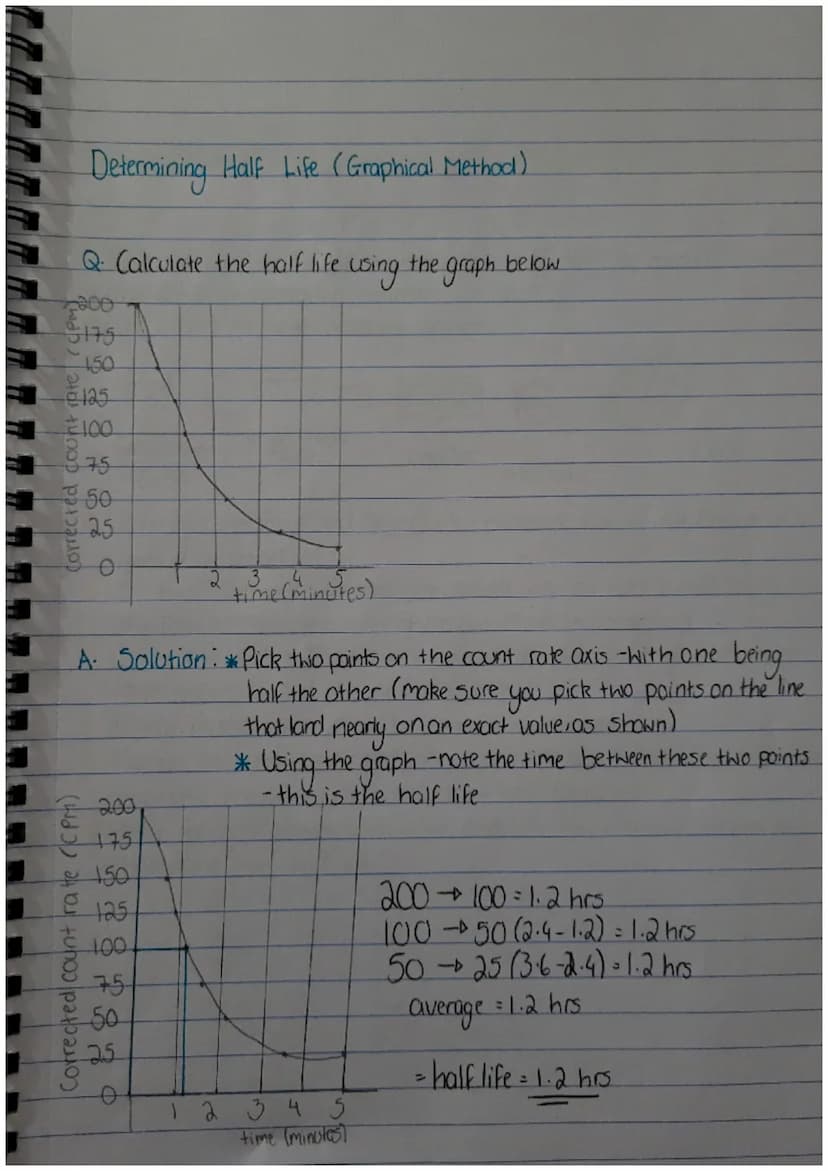 Determining Half Life (Graphical Method)
Q. Calculate the half life using the graph below
Corrected count rate (CPM)
200
175
150
125
100
75
50
25
0
1 2 3 4 5
time (minutes)
A. Solution: * Pick two points on the count rate axis - with one being
half the other (make sure you pick two points on the line
that land nearly on an exact value, as shown)
* Using the graph - note the time between these two points
- this is the half life
Corrected count rate (CPM)
200
175
150
125
100
75
50
25
0
1 2 3 4 5
time (minutes)
200 → 100 = 1.2 hrs
100 → 50 (2.4 - 1.2) = 1.2 hrs
50 → 25 (3.6 - 2.4) = 1.2 hrs
average = 1.2 hrs
= half life = 1.2 hrs